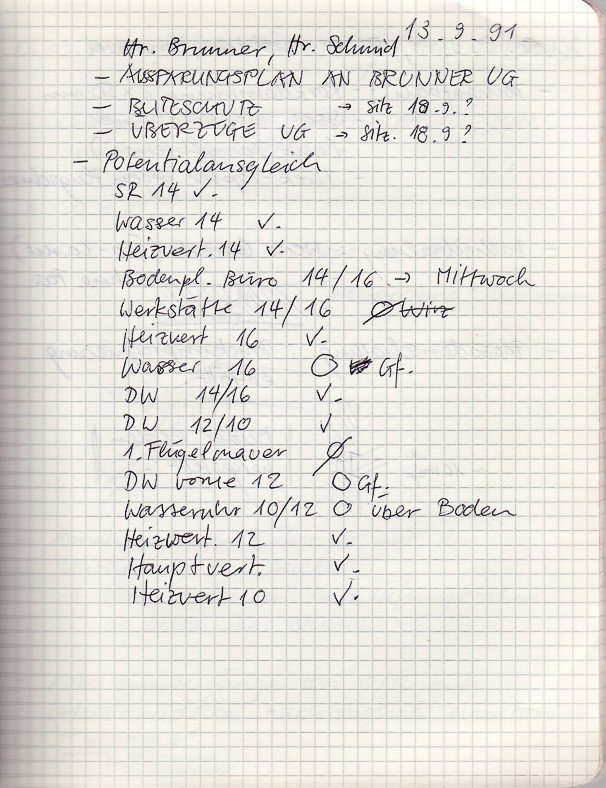 13.9.91
Hr. Brunner, Hr. Schmid
– AUSSPARUNGSPLAN AN BRUNNER UG
– BLITZSCHUTZ → Sitz 18.9.?
– ÜBERZÜGE UG → Sitz. 18.9?
– Potentialausgleich
SR 14 ✓.
Wasser 14 ✓.
Heizvert. 14 ✓.
Bodenpl. Büro 14/16 → Mittwoch
Werkstätte 14/16 Ø Wirz
Heizvert 16 ✓.
Wasser 16 O Gf.
DW 14/16 ✓.
DW 12/10 ✓
1. Flügelmauer Ø
DW vorne 12 O Gf.
Wasseruhr 10/12 O über Boden
Heizvert. 12 ✓.
Hauptvert. ✓.
Heizvert 10 ✓.